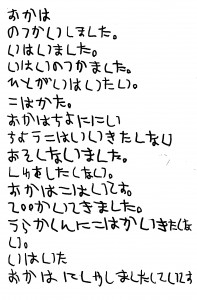 おかは
のつかいしました。
いはいました。
いはいのつかました。
ひとがいはいたい。
こはかた。
おかはちよににい
ちようこはいいきたしない
あそしないました。
しゅをした(ない)。
おかはこはいてす。
て００かいてきました。
うらかんにこはかいきた(な
い)。
いはいた
おかは にしやしましたしていてす